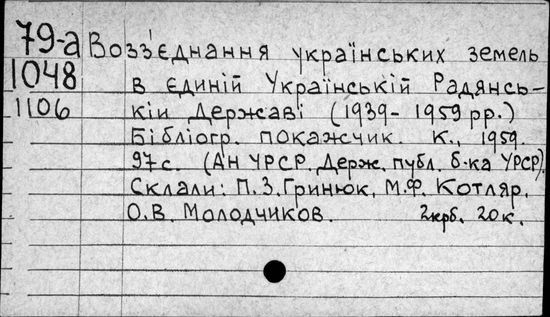 79-а Возз'єднання українських земель
1048 в єдиній Українській Радянсь-
1106 кій Державі (1939-1959 рр.)
Бібліогр. покажчик. К., 1959.
97с. (АН УРСР. Держ. публ. б-ка УРСР).
Склали: П.З.Гринюк, М.Ф. Котляр,
О.В. Молодчиков. 2крб. 20к.